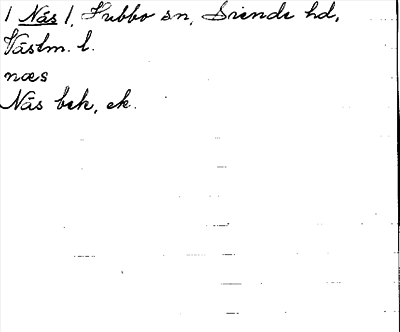 / Näs /, Hubbo sn, Siende hd,
Västm. l.
næs
Näs bek, ek.